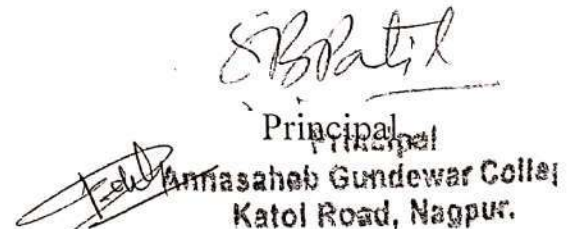 SBPatil
Principal
Principal
Annasaheb Gundewar Colle
Katol Road, Nagpur.